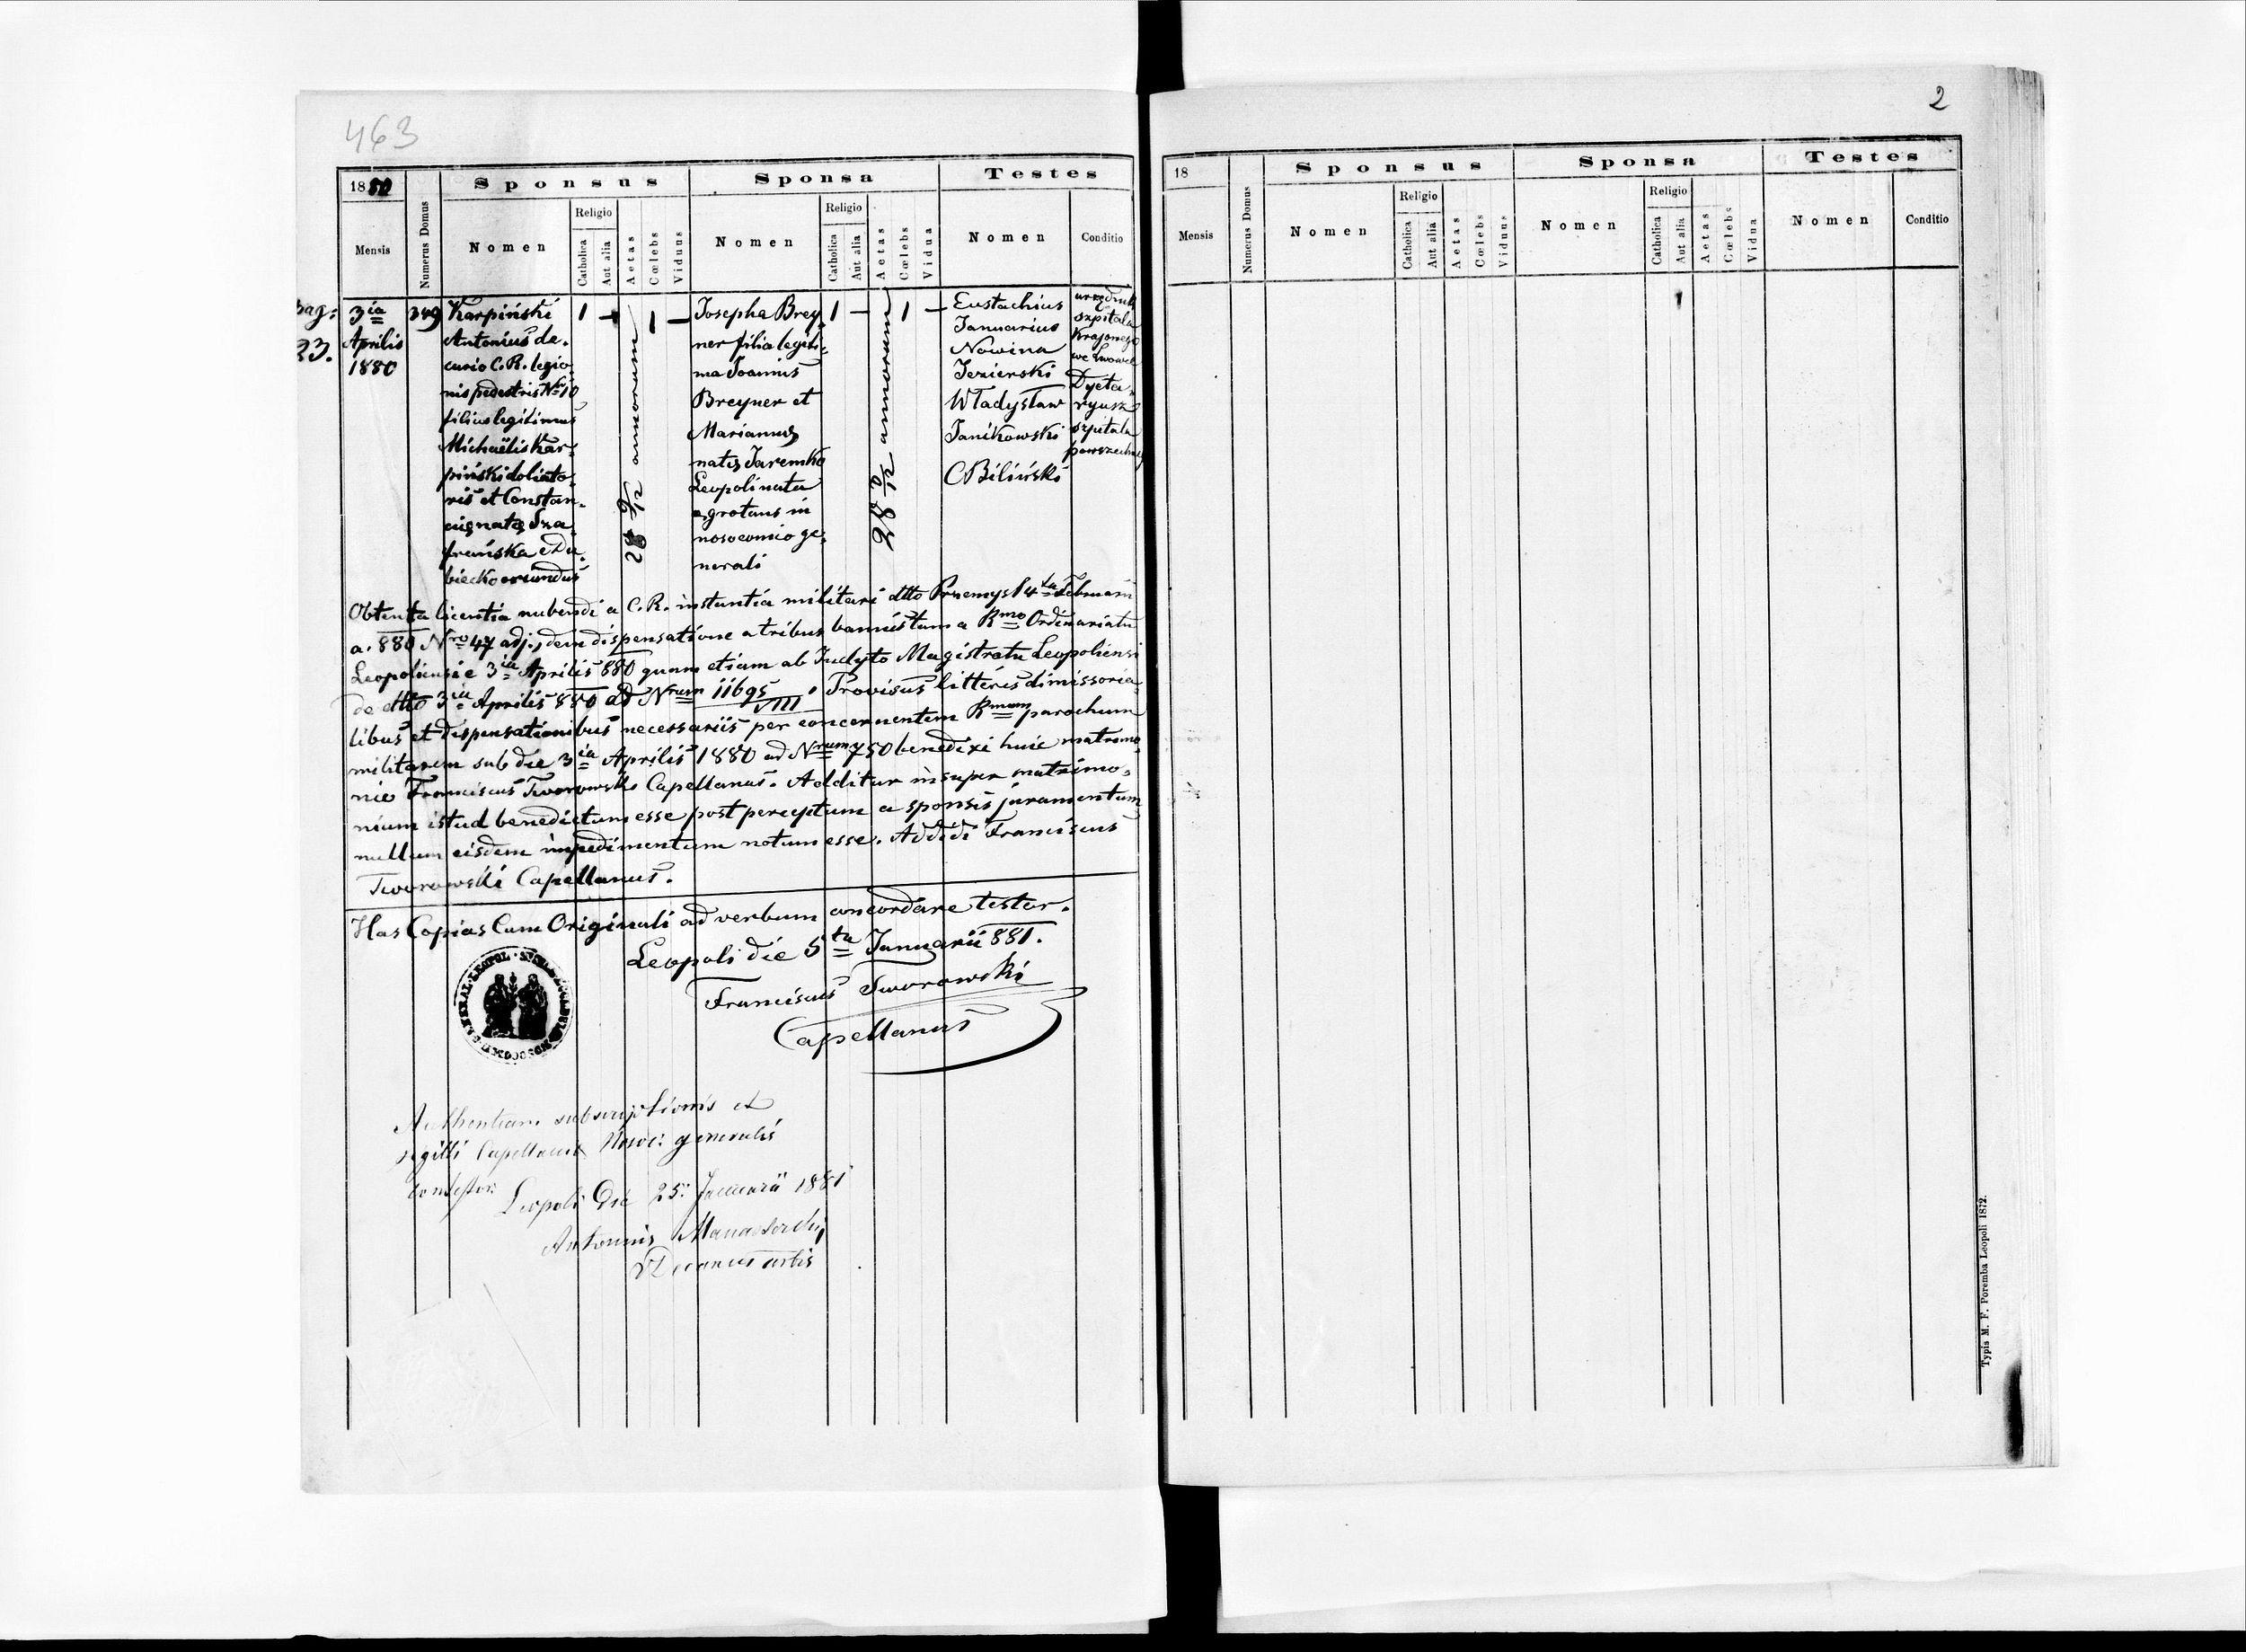 463
1880
Sponsus
Sponsa
Testes
Mensis
Numerus Domus
Nomen
Religio
Catholica
Aut alia
Aetas
Cœlebs
Viduus
Nomen
Religio
Catholica
Aut alia
Aetas
Cœlebs
Vidua
Nomen
Conditio
pag:
23.
3ia
Aprilis
1880
349
Karpiński
Antonius de-
curio C. R. legio-
nis pedestris No 10
filius legitimus
Michaëlis Kar-
piński doliato-
ris et Constan-
cię natę Sza-
frańska e Du-
biecko oriundus
1 –
28 9/12 annorum
1 –
Josepha Brey-
ner filia legiti-
ma Joannis
Breyner et
Mariannę
natę Jaremko
Leopoli nata
ęgrotans in
nosocomio ge-
nerali
1 –
28 annorum
1 –
Eustachius
Januarius
Nowina
Jezierski
Władysław
Janikowski
C Biliński
urzędnik
szpitala
Krajowego
we Lwowie
Dyeta-
ryusz
szpitala
powszechneg
Obtenta licentia nubendi a C. R. instantia militari dtto Przemysl 4ta Februarii
a. 880 Nro 47 adj., dein dispensatione a tribus bannis tum a Rmo Ordinariatu
Leopoliensi e 3ia Aprilis 880 quam etiam ab Inclyto Magistratu Leopoliensi
de dtto 3ia Aprilis 880 ad Nrum 11695/VIII. Provisus litteris dimissoria-
libus et dispensationibus necessariis per concernentem Rmum parochum
militarem sub die 3ia Aprilis 1880 ad Nrum 750 benedixi huic matrimo-
nio Franciscus Tworowski Capellanus. Additur insuper matrimo-
nium istud benedictum esse post perceptum a sponsis juramentum
nullum eisdem impedimentum notum esse. Addidi Franciscus
Tworowski Capellanus.
Has Copias Cum Originali ad verbum concordare testor.
Leopoli die 5ta Januarii 881.
Franciscus Tworowski
Capellanus
Authenticam subscriptionis et
sigilli Capellani Nosoc: generalis
contestor:
Leopoli Die 25: Januarii 1881
Antonius
2
18
Sponsus
Sponsa
Testes
Mensis
Numerus Domus
Nomen
Religio
Catholica
Aut alia
Aetas
Cœlebs
Viduus
Nomen
Religio
Catholica
Aut alia
Aetas
Cœlebs
Vidua
Nomen
Conditio
Typis M. F. Poremba Leopoli 1872.